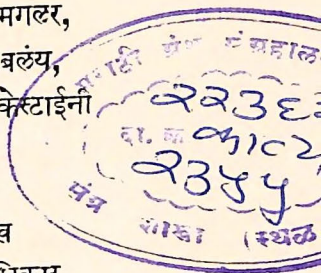 मगलर,
बलंय,
केस्टाईनी
मराठी ग्रंथ संग्रहाल
२२३६
दा. क्र काव्य
२३५५
शाखा (स्थळ
ख